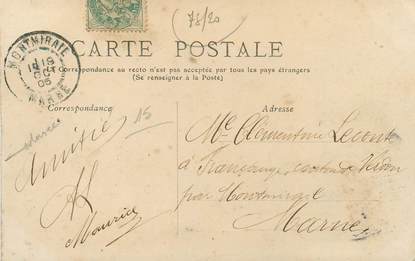 78/20
CARTE POSTALE
La Correspondance au recto n'est pas acceptée par tous les pays étrangers
(Se renseigner à la Poste)
MONTMIRAIL
18
OCT
05
MARNE
Correspondance
Adresse
15
Amitié
Maurice
Mlle Clémentine Lecomte
à canton de Verdon
par Montmirail
Marne